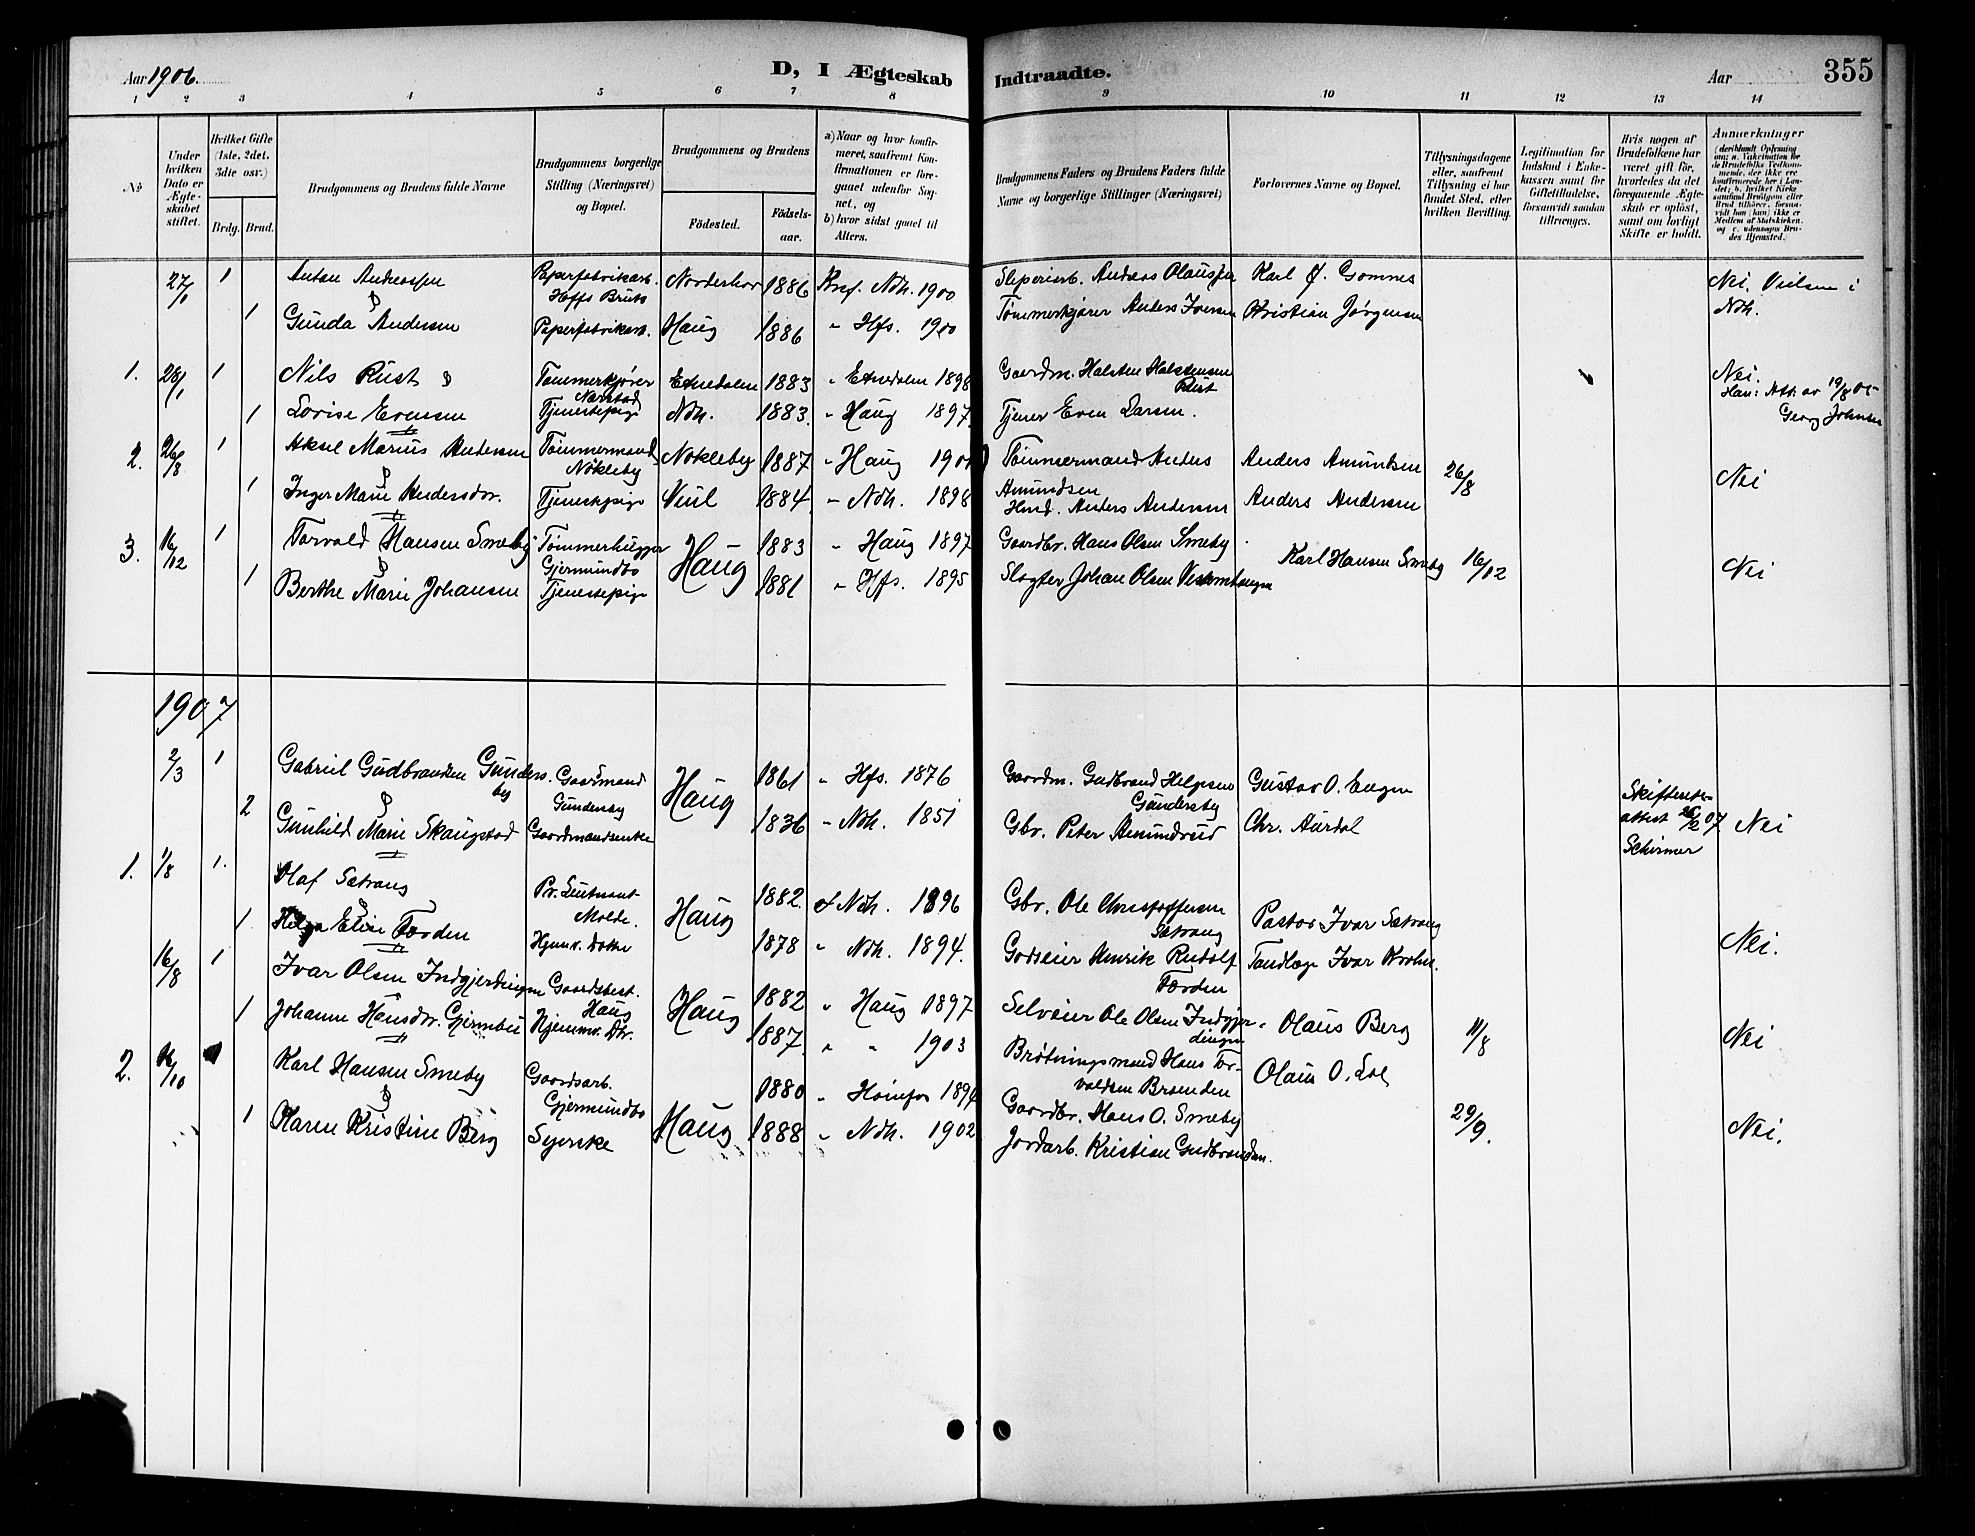 Aar 1906.
D, I Ægteskab Indtraadte.
Aar
355
1 2 3 4 5 6 7 8 9 10 11 12 13 14
No
Under hvilken Dato er Ægteskabet stiftet.
Hvilket Gifte (1ste, 2det, 3die osv.)
Brdg. Brud.
Brudgommens og Brudens fulde Navne
Brudgommens borgerlige Stilling (Næringsvei) og Bopæl.
Brudgommens og Brudens
Fødested.
Fødselsaar.
a) Naar og hvor konfirmeret, saafremt Konfirmationen er foregaaet udenfor Sognet, og
b) hvor sidst gaaet til Alters.
Brudgommens Faders og Brudens Faders fulde Navne og borgerlige Stillinger (Næringsvei)
Forlovernes Navne og Bopæl.
Tillysningsdagene eller, saafremt Tillysning ei har fundet Sted, efter hvilken Bevilling.
Legitimation for Indskud i Enkekassen samt for Giftetilladelse, forsaavidt saadan tiltrænges.
Hvis nogen af Brudefolkene har været gift før, hvorledes da det foregaaende Ægteskab er opløst, samt om lovligt Skifte er holdt.
Anmerkninger (deriblandt Oplysning om: a. Vakcination for de Brudefolks Vedkommende, der ikke ere konfirmerede her i Landet; b. hvilket Kirkesamfund Brudgom eller Brud tilhører, forsaavidt han (hun) ikke er Medlem af Statskirken, og c. udensogns Brudes Hjemsted.)
27/1 1 Anton Andreassen Papirfabrikarb. Hofs Brug Norderhov 1886 Knf. Ndh. 1900 Sliperiarb. Andreas Olaussen Karl J. Gomnes Nei. Vielsen i Ndh.
1 Gunda Andersen Papirfabrikarb. Haug 1886 " Hfs. 1900 Tømmerkjører Anders Iversen Kristian Jørgensen
1. 28/1 1 Nils Rust & Tømmerkjører Etnedalen 1883 " Etnedalen 1898 Gaardm. Halsten Halstensen Rust Nei. Han: Att. av 19/8 05 Georg Johnsen
1 Lovise Evensen Tjenestepige Ndh. 1883. " Haug 1897. Tjener Even Larsen.
2. 26/8 1 Aksel Marius Andersen Tømmermand Nokleby Nokleby 1887 " Haug 1901 Tømmermand Anders Amundsen Anders Amundsen 26/8 Nei
1 Inger Marie Andersdtr. Tjenestepige Veul 1884. " Ndh. 1898 Hmd. Anders Andersen Anders Andersen
3. 16/12 1 Torvald Hansen Smeby Tømmerhugger Gjermundbo Haug 1883 " Haug 1897 Gaardbr. Hans Olsen Smeby. Karl Hansen Smeby 16/12 Nei
1 Berthe Marie Johansen Tjenestepige 1881 " Hfs. 1895 Slagter Johan Olsen
1907
2/3 1 Gabriel Gudbrandsen Gundersby Gaardmand Gundersby Haug 1861 " Hfs. 1876 Gaardm. Gudbrand Helgesen Gundersby Gustav O. Engen Skifteretsattest 26/2 07 Schirmer Nei
2 Gunhild Marie Skaugstad Gaardmandsenke 1836 " Ndh. 1851 Gbr. Peter Amundrud Chr. Aurdal
1. 1/8 1. Olaf Sætrang Pr. Leutnant Molde. Haug 1882. Ndh. 1896 Gbr. Ole Christoffersen Sætrang Pastor Ivar Sætrang Nei.
1 Helga Elise Færden Hjemv. Datter 1878 " Ndh. 1894. Godseier Henrik Rudolf Færden Tandlæge Ivar Krohn.
16/8 1 Ivar Olsen Indgjerdingen Gaardsbest. Haug Haug 1882 " Haug 1897 Selveier Ole Olsen Indgjerdingen Olaus Berg 11/8 Nei
1 Johanne Hansdtr. Hjemmv. Dtr. 1887. " " 1903 Brøtningsmand Hans Torvaldsen Brænden Olaus O.
2. 16/10 Karl Hansen Smeby Gaardsarb. Gjermundbo Haug 1880 " Hønefos 1894 Gaardbr. Hans O. Smeby 29/9. Nei.
1 Karen Kristine Berg Syerske 1888 " Ndh. 1902 Jordarb. Kristian Gudbrandsen.